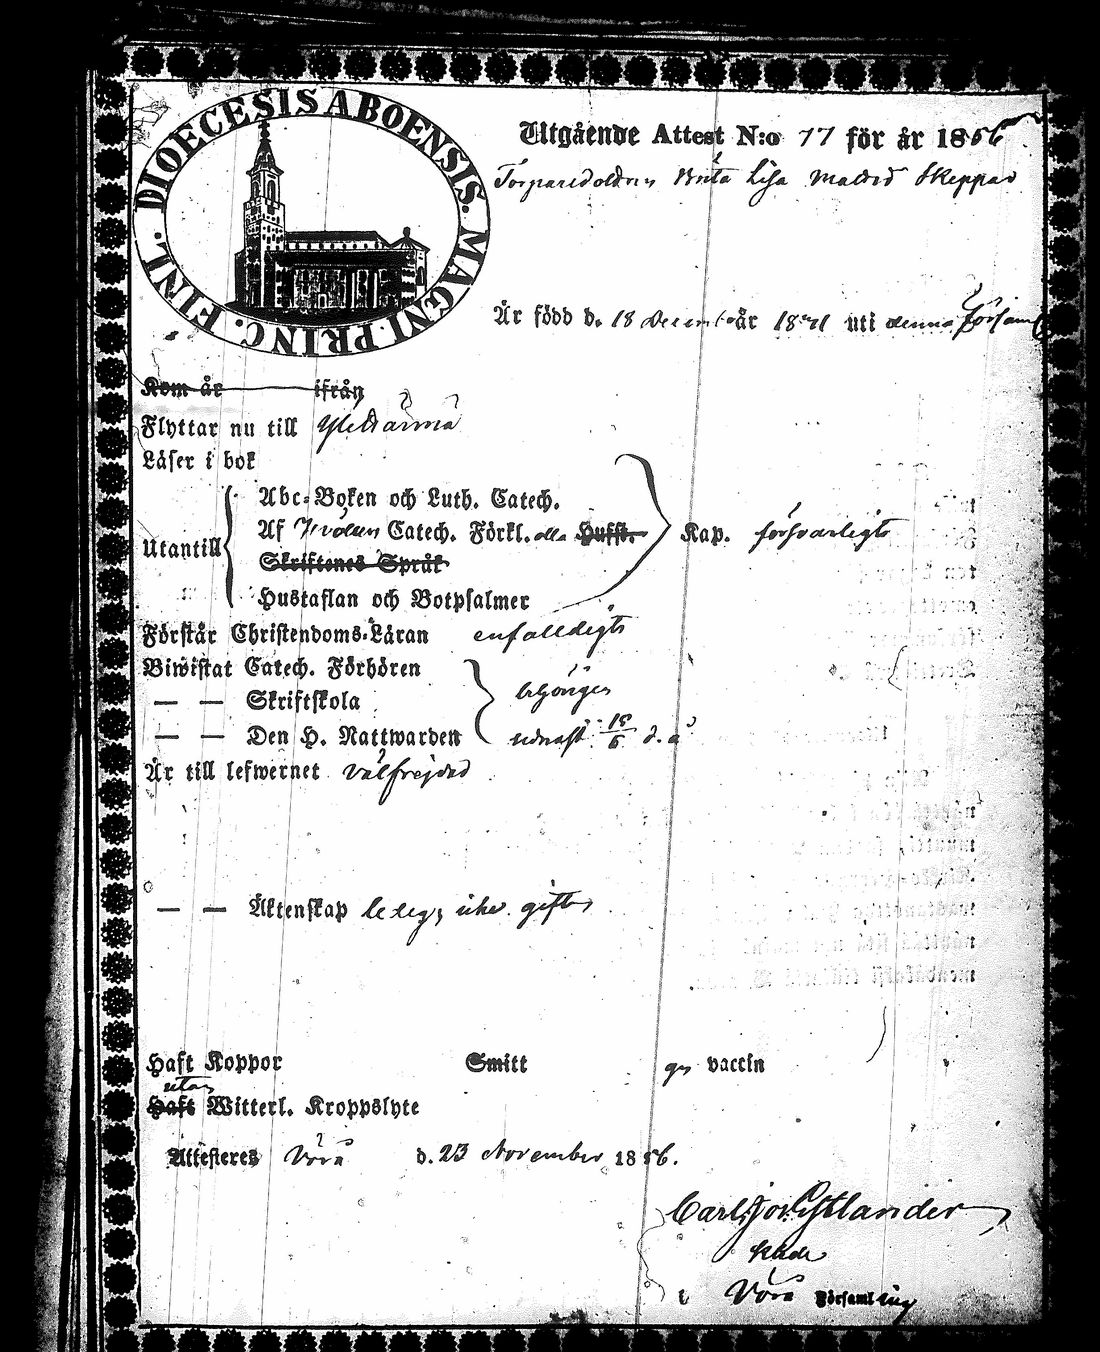 DIOECESIS ABOENSIS. MAGNI. PRINC. FINL.
Utgående Attest N:o 77 för år 1856
Brita Lisa Skeppar
Är född d. 18 Decemb. år 18 uti denna Församl.
Kom år ifrån
Flyttar nu till Ylihärmä
Läser i bok
Utantill
Abc-Boken och Luth. Catech.
Af Catech. Förkl. alla Hufst.
Skriftenes Språk
Hustaflan och Botpsalmer
Kap. försvarligt
Förstår Christendoms-Läran enfalldigt
Biwistat Catech. Förhören
— — Skriftskola
— — Den H. Nattwarden
behörigen
15/6 d. å
Är till lefwernet välfrejdad
— — Äktenskap ledig, icke gift
Haft Koppor Smitt gn vaccin
utan
Haft Witterl. Kroppslyte
Attesteres Vörå d. 23 November 1856.
Carl
Vörå Församling